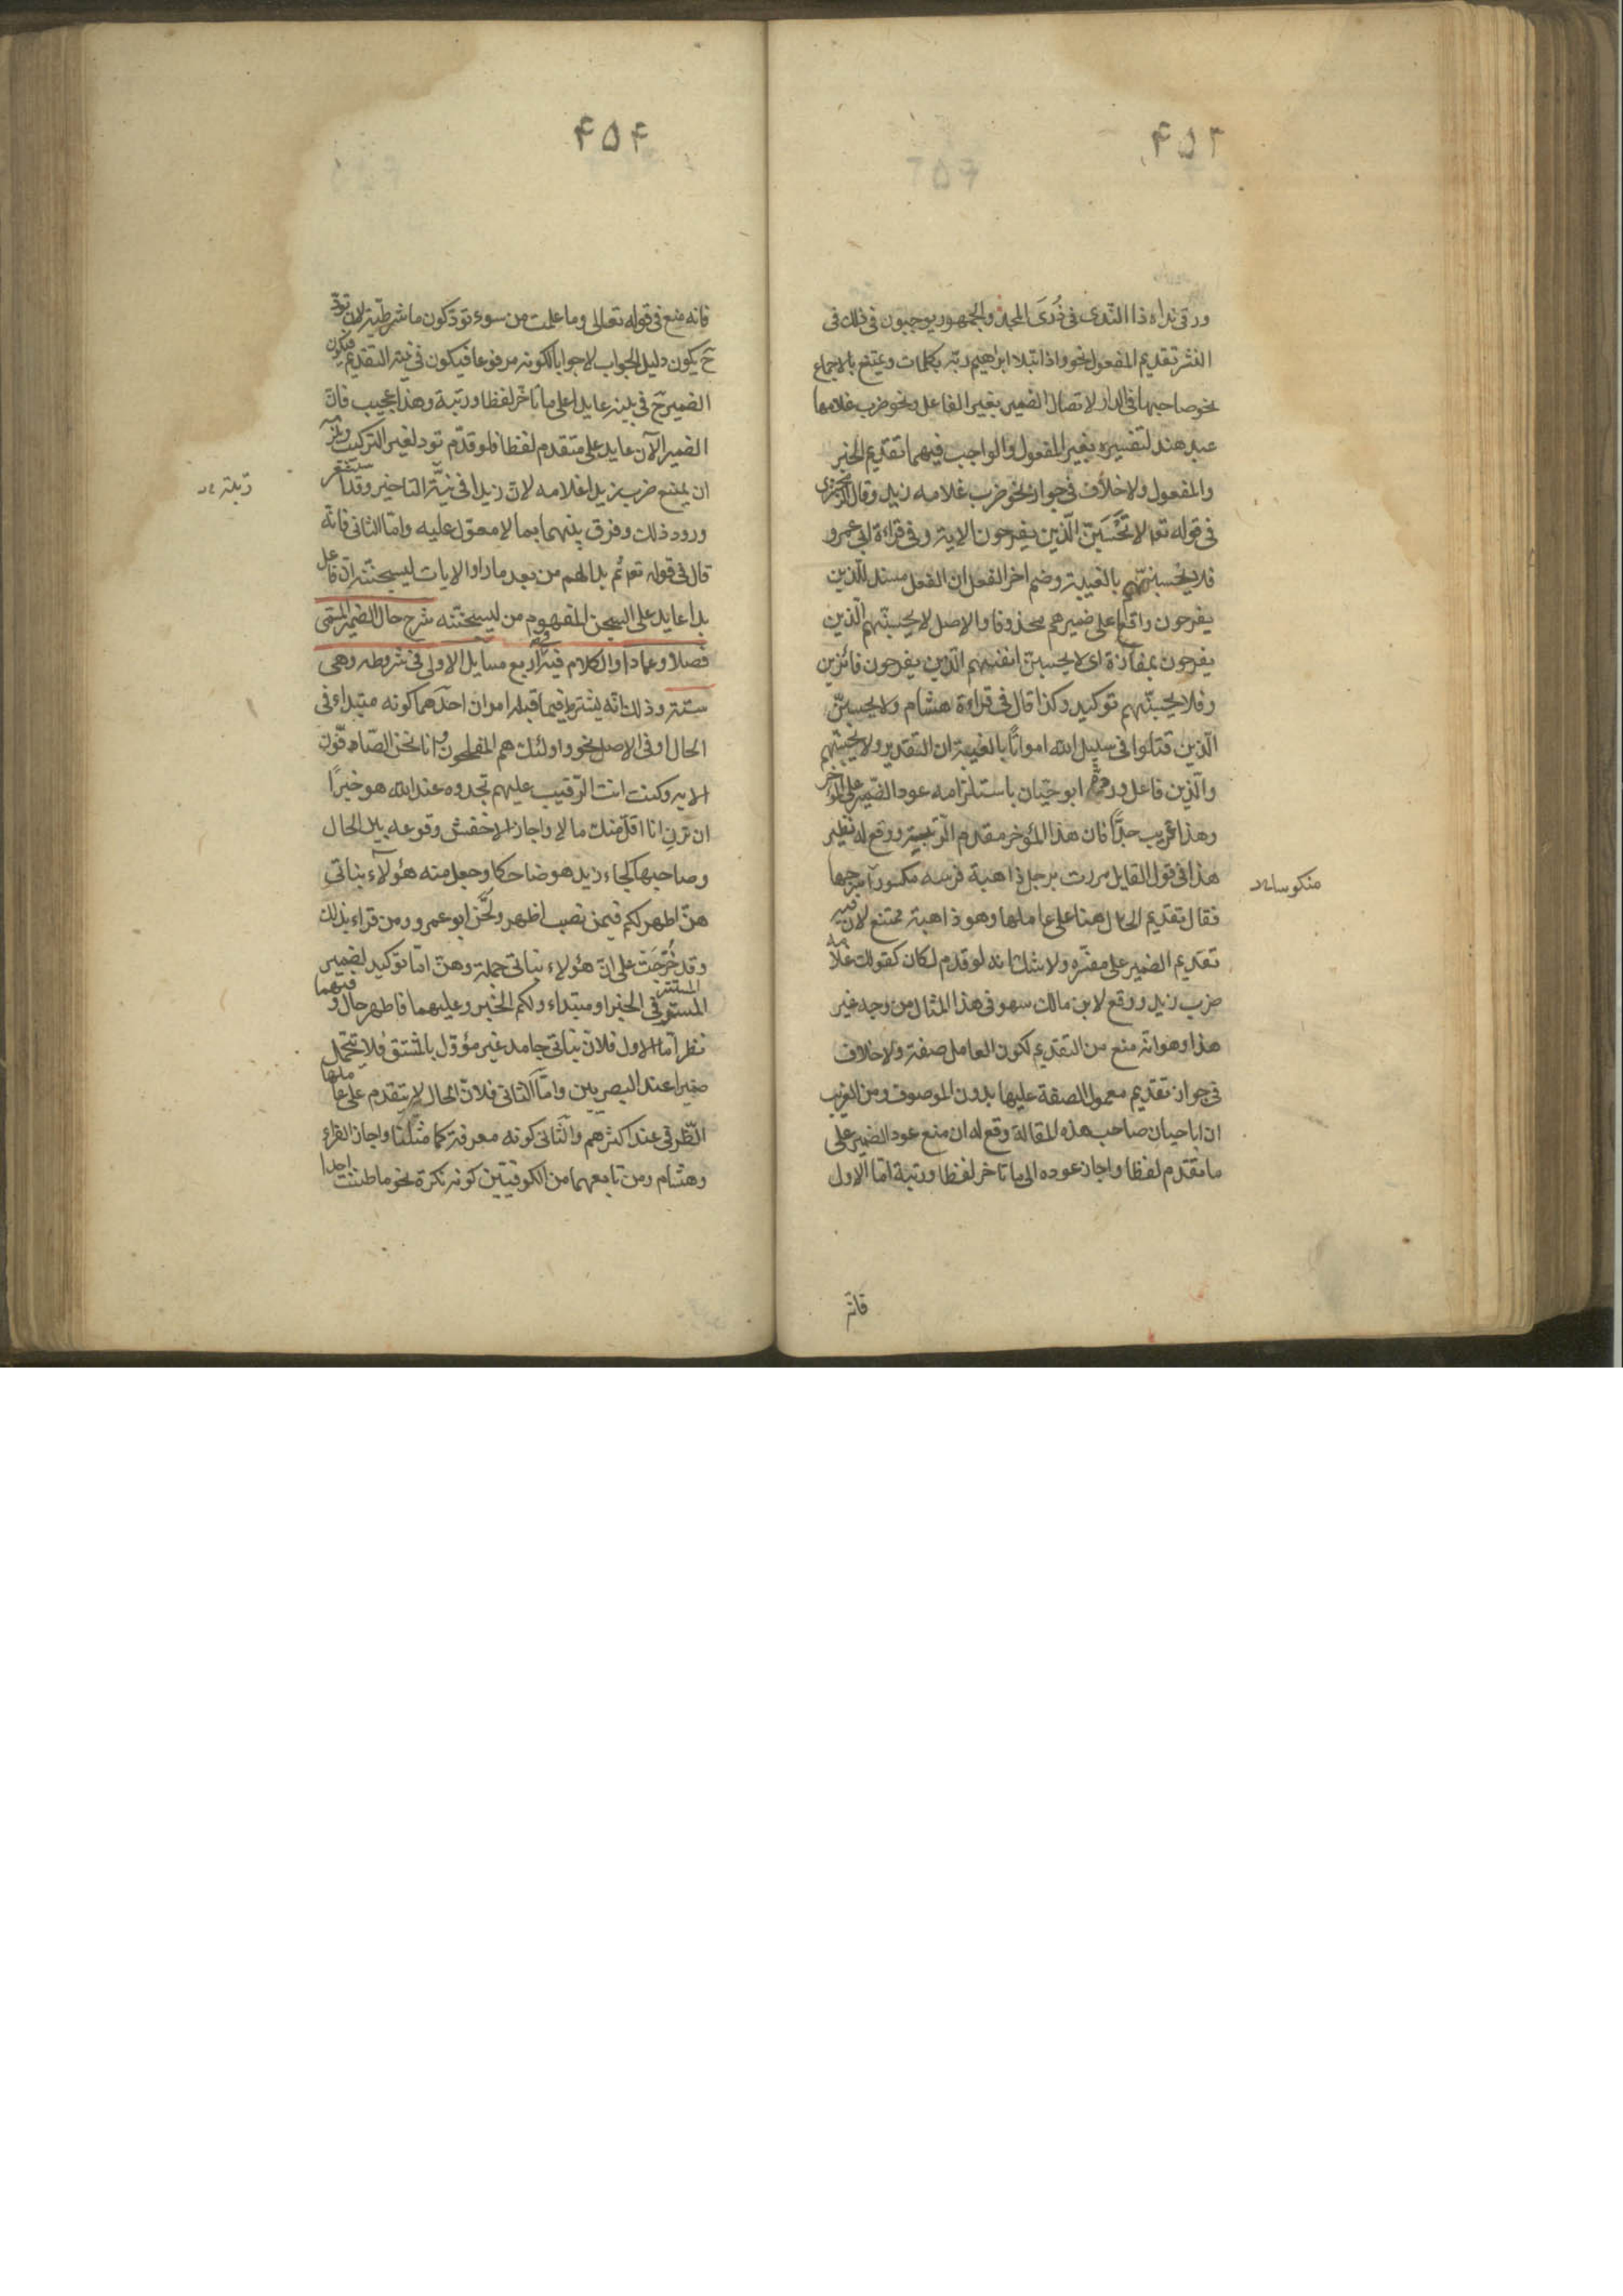 ۴۵۳
ورقى نداه ذا الندى فى ذرى المجد والجمهور يوجبون فى ذلك فى
النثر تقديم المفعول نحو واذا ابتلا ابراهيم ربه بكلمات ويمتنع بالاجماع
نحو صاحبها فى الدار لاتصال الضمير بغير الفاعل ونحو ضرب غلامها
عبد هند لتفسيره بغير المفعول والواجب فيهما تقديم الخبر
والمفعول ولا خلاف فى جواز نحو ضرب غلامه زيد وقال الزمخشرى
فى قوله تعا لا تحسبن الذين يفرحون الاية وفى قراءة ابى عمرو
فلا يحسبنهم بالغيبة وضم اخر الفعل ان الفعل مسند للذين
يفرحون واقعا على ضميرهم محذوفا والاصل لا يحسبنهم الذين
يفرحون بمفازة اى لا يحسبن انفسهم الذين يفرحون فائزين
وفلا يحسبنهم توكيد وكذا قال فى قراءة هشام ولا يحسبن
الذين قتلوا فى سبيل الله امواتا بالغيبة ان التقدير ولا يحسبنهم
والذين فاعل ورده ابو حيان باستلزامه عود الضمير على المؤخر
وهذا غريب جدا فان هذا المؤخر مقدم الرتبة ووقع له نظير
هذا فى قول القايل مررت برجل ذاهبة فرسه مكسورا سرجها
منكوسا
فقال تقديم الحال هنا على عاملها وهو ذاهبة ممتنع لان فيه
تقديم الضمير على مفسره ولا شك انه لو قدم لكان كقولك غلامه
ضرب زيد ووقع لابن مالك سهو فى هذا المثال من وجه غير
هذا وهو انه منع من التقديم لكون العامل صفة ولا خلاف
فى جواز تقديم معمول الصفة عليها بدون الموصوف ومن الغريب
ان ابا حيان صاحب هذه المقالة وقع له ان منع عود الضمير على
ما تقدم لفظا واجاز عوده الى ما تاخر لفظا ورتبة اما الاول
فانه
۴۵۴
فانه منع فى قوله تعالى وما عملت من سوء تود كون ما شرطية لان تود
ح يكون دليل الجواب لا جوابا لكونه مرفوعا فيكون فى نية التقديم فيكون
الضمير ح فى بينه عايدا على ما تاخر لفظا ورتبة وهذا عجيب فان
الضمير الآن عايد على متقدم لفظا فلو قدم تود لغير التركيب ويلزمه
ان يمتنع ضرب زيدا غلامه لان زيدا فى نية التاخير وقد استشعر
ورود ذلك وفرق بينهما بما لا معول عليه واما الثانى فانه
قال فى قوله تعا ثم بدا لهم من بعد ما راوا الايات ليسجننه ان فاعل
بدا عايد على السجن المفهوم من ليسجننه شرح حال الضمير المسمى
فصلا وعمادا والكلام فيه اربع مسايل الاولى فى شروطه وهى
ستة وذلك انه يشترط فيما قبله امران احدهما كونه مبتداء فى
الحال او فى الاصل نحو واولئك هم المفلحون وانا نحن الصافون
الاية وكنت انت الرقيب عليهم تجدوه عند الله هو خيرا
ان ترن انا اقل منك مالا واجاز الاخفش وقوعه بين الحال
وصاحبها كجاء زيد هو ضاحكا وجعل منه هؤلاء بناتى
هن اطهر لكم فيمن نصب اطهر ولحن ابو عمرو ومن قراء بذلك
وقد خرجت على ان هؤلاء بناتى جملة وهن اما توكيد لضمير
المستتر
المستتر فى الخبر او مبتداء ولكم الخبر وعليهما فاطهر حال وفيهما
نظر اما الاول فلان بناتى جامد غير مؤول بالمشتق فلا يتحمل
ضميرا عند البصريين واما الثانى فلان الحال لا يتقدم على عاملها
الظرفى عند اكثرهم والثانى كونه معرفة كما مثلنا واجاز الفراء
وهشام ومن تابعهما من الكوفيين كونه نكرة نحو ما ظننت احدا